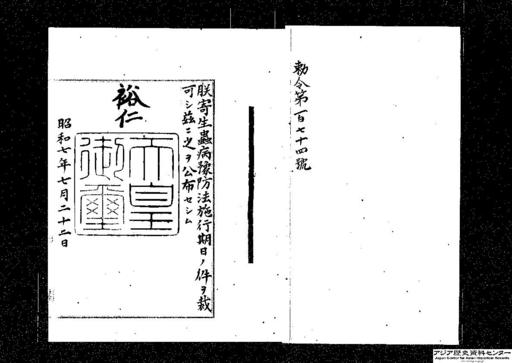 勅令第一百七十四號
朕寄生蟲病豫防法施行期日ノ件ヲ裁
可シ茲ニ之ヲ公布セシム
裕仁
天皇
御璽
昭和七年七月二十二日
アジア歴史資料センター
Japan Center for Asian Historical Records